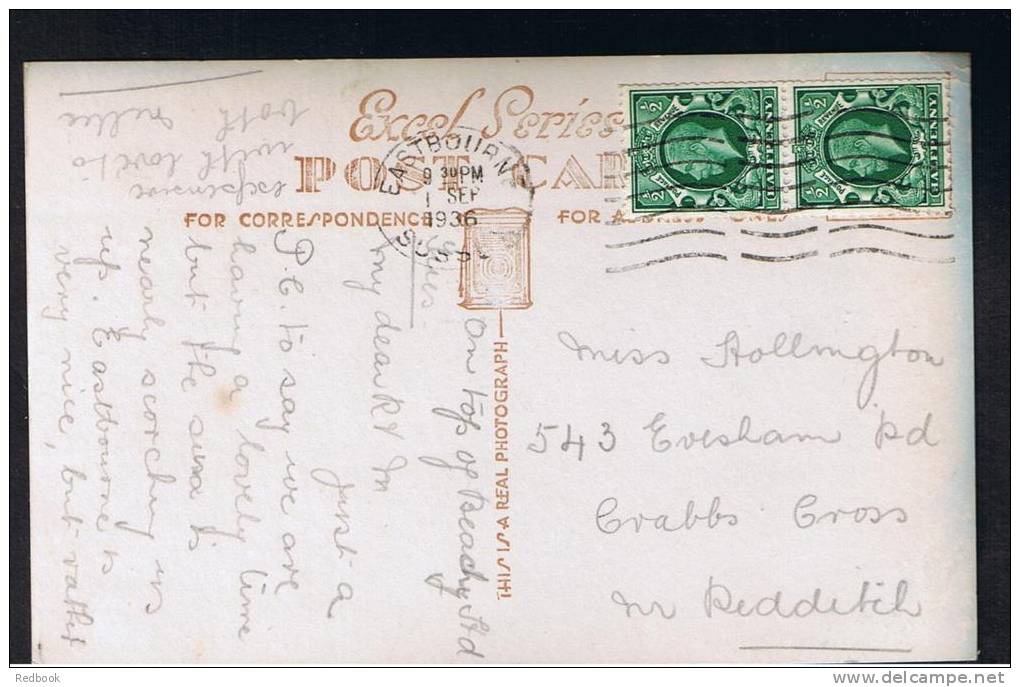 Excel Series
POST CAR
FOR CORRESPONDENCE
FOR ADDRESS ONLY
THIS IS A REAL PHOTOGRAPH
EASTBOURNE
9 30 PM
1 SEP
1936
SUSSEX
½ HALFPENNY
POSTAGE REVENUE
½ HALFPENNY
POSTAGE REVENUE
Miss Hollington
543 Evesham Rd
Crabbs Cross
nr Redditch
On top of Beachy Hd
Tues.
my dear R & M
Just a
P.C. to say we are
having a lovely time
but the sun is
nearly scorching us
up. Eastbourne is
very nice, but rather
expensive
with love to
both
Nellie
Redbook
www.delcampe.net